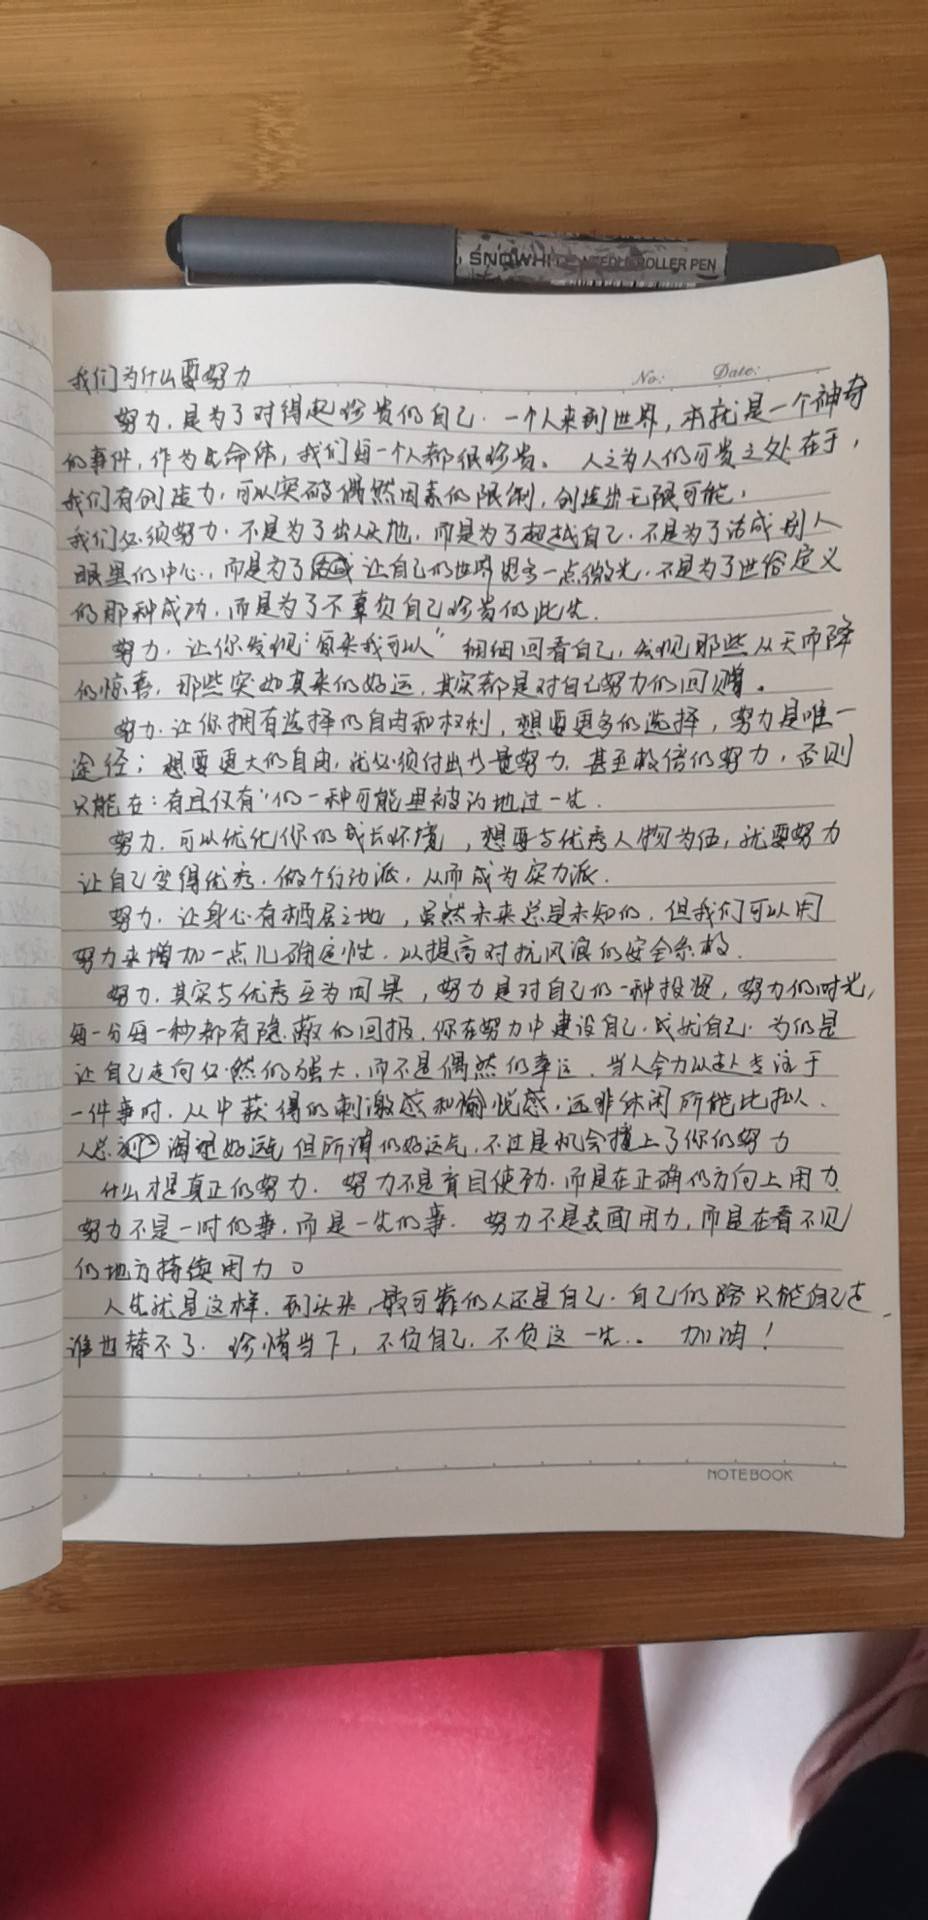 SNOWHITE NEEDLE ROLLER PEN
No: Date:
我们为什么要努力
努力,是为了对得起珍贵的自己.一个人来到世界,本就是一个神奇
的事件,作为生命体,我们每一个人都很珍贵。人之为人的可贵之处在于,
我们有创造力,可以突破偶然因素的限制,创造出无限可能,
我们必须努力.不是为了出人头地,而是为了超越自己.不是为了活成别人
眼里的中心.,而是为了让自己的世界更多一点微光.不是为了世俗定义
的那种成功,而是为了不辜负自己珍贵的此生.
努力,让你发现:"原来我可以"细细回看自己,发现那些从天而降
的惊喜,那些突如其来的好运,其实都是对自己努力的回赠。
努力.让你拥有选择的自由和权利,想要更多的选择,努力是唯一
途径;想要更大的自由,就必须付出步量努力.甚至数倍的努力,否则
只能在:有且仅有"的一种可能里被动地过一生.
努力.可以优化你的成长环境,想要与优秀人物为伍,就要努力
让自己变得优秀.做个行动派,从而成为实力派.
努力.让身心有栖居之地,虽然未来总是未知的,但我们可以用
努力来增加一点儿确定性.以提高对抗风浪的安全系数.
努力.其实与优秀互为因果,努力是对自己的一种投资,努力的时光,
每一分每一秒都有隐蔽的回报.你在努力中建设自己.成就自己.为的是
让自己走向必然的强大,而不是偶然的幸运.当人全力以赴专注于
一件事时.从中获得的刺激感和愉悦感,远非休闲所能比拟.
人总渴望好运气但所谓的好运气,不过是机会撞上了你的努力
什么才是真正的努力.努力不是盲目使劲.而是在正确的方向上用力.
努力不是一时的事,而是一生的事.努力不是表面用力,而是在看不见
的地方持续用力。
人生就是这样.到头来,最可靠的人还是自己.自己的路只能自己走
谁也替不了.珍惜当下,不负自己.不负这一生..加油!
NOTEBOOK